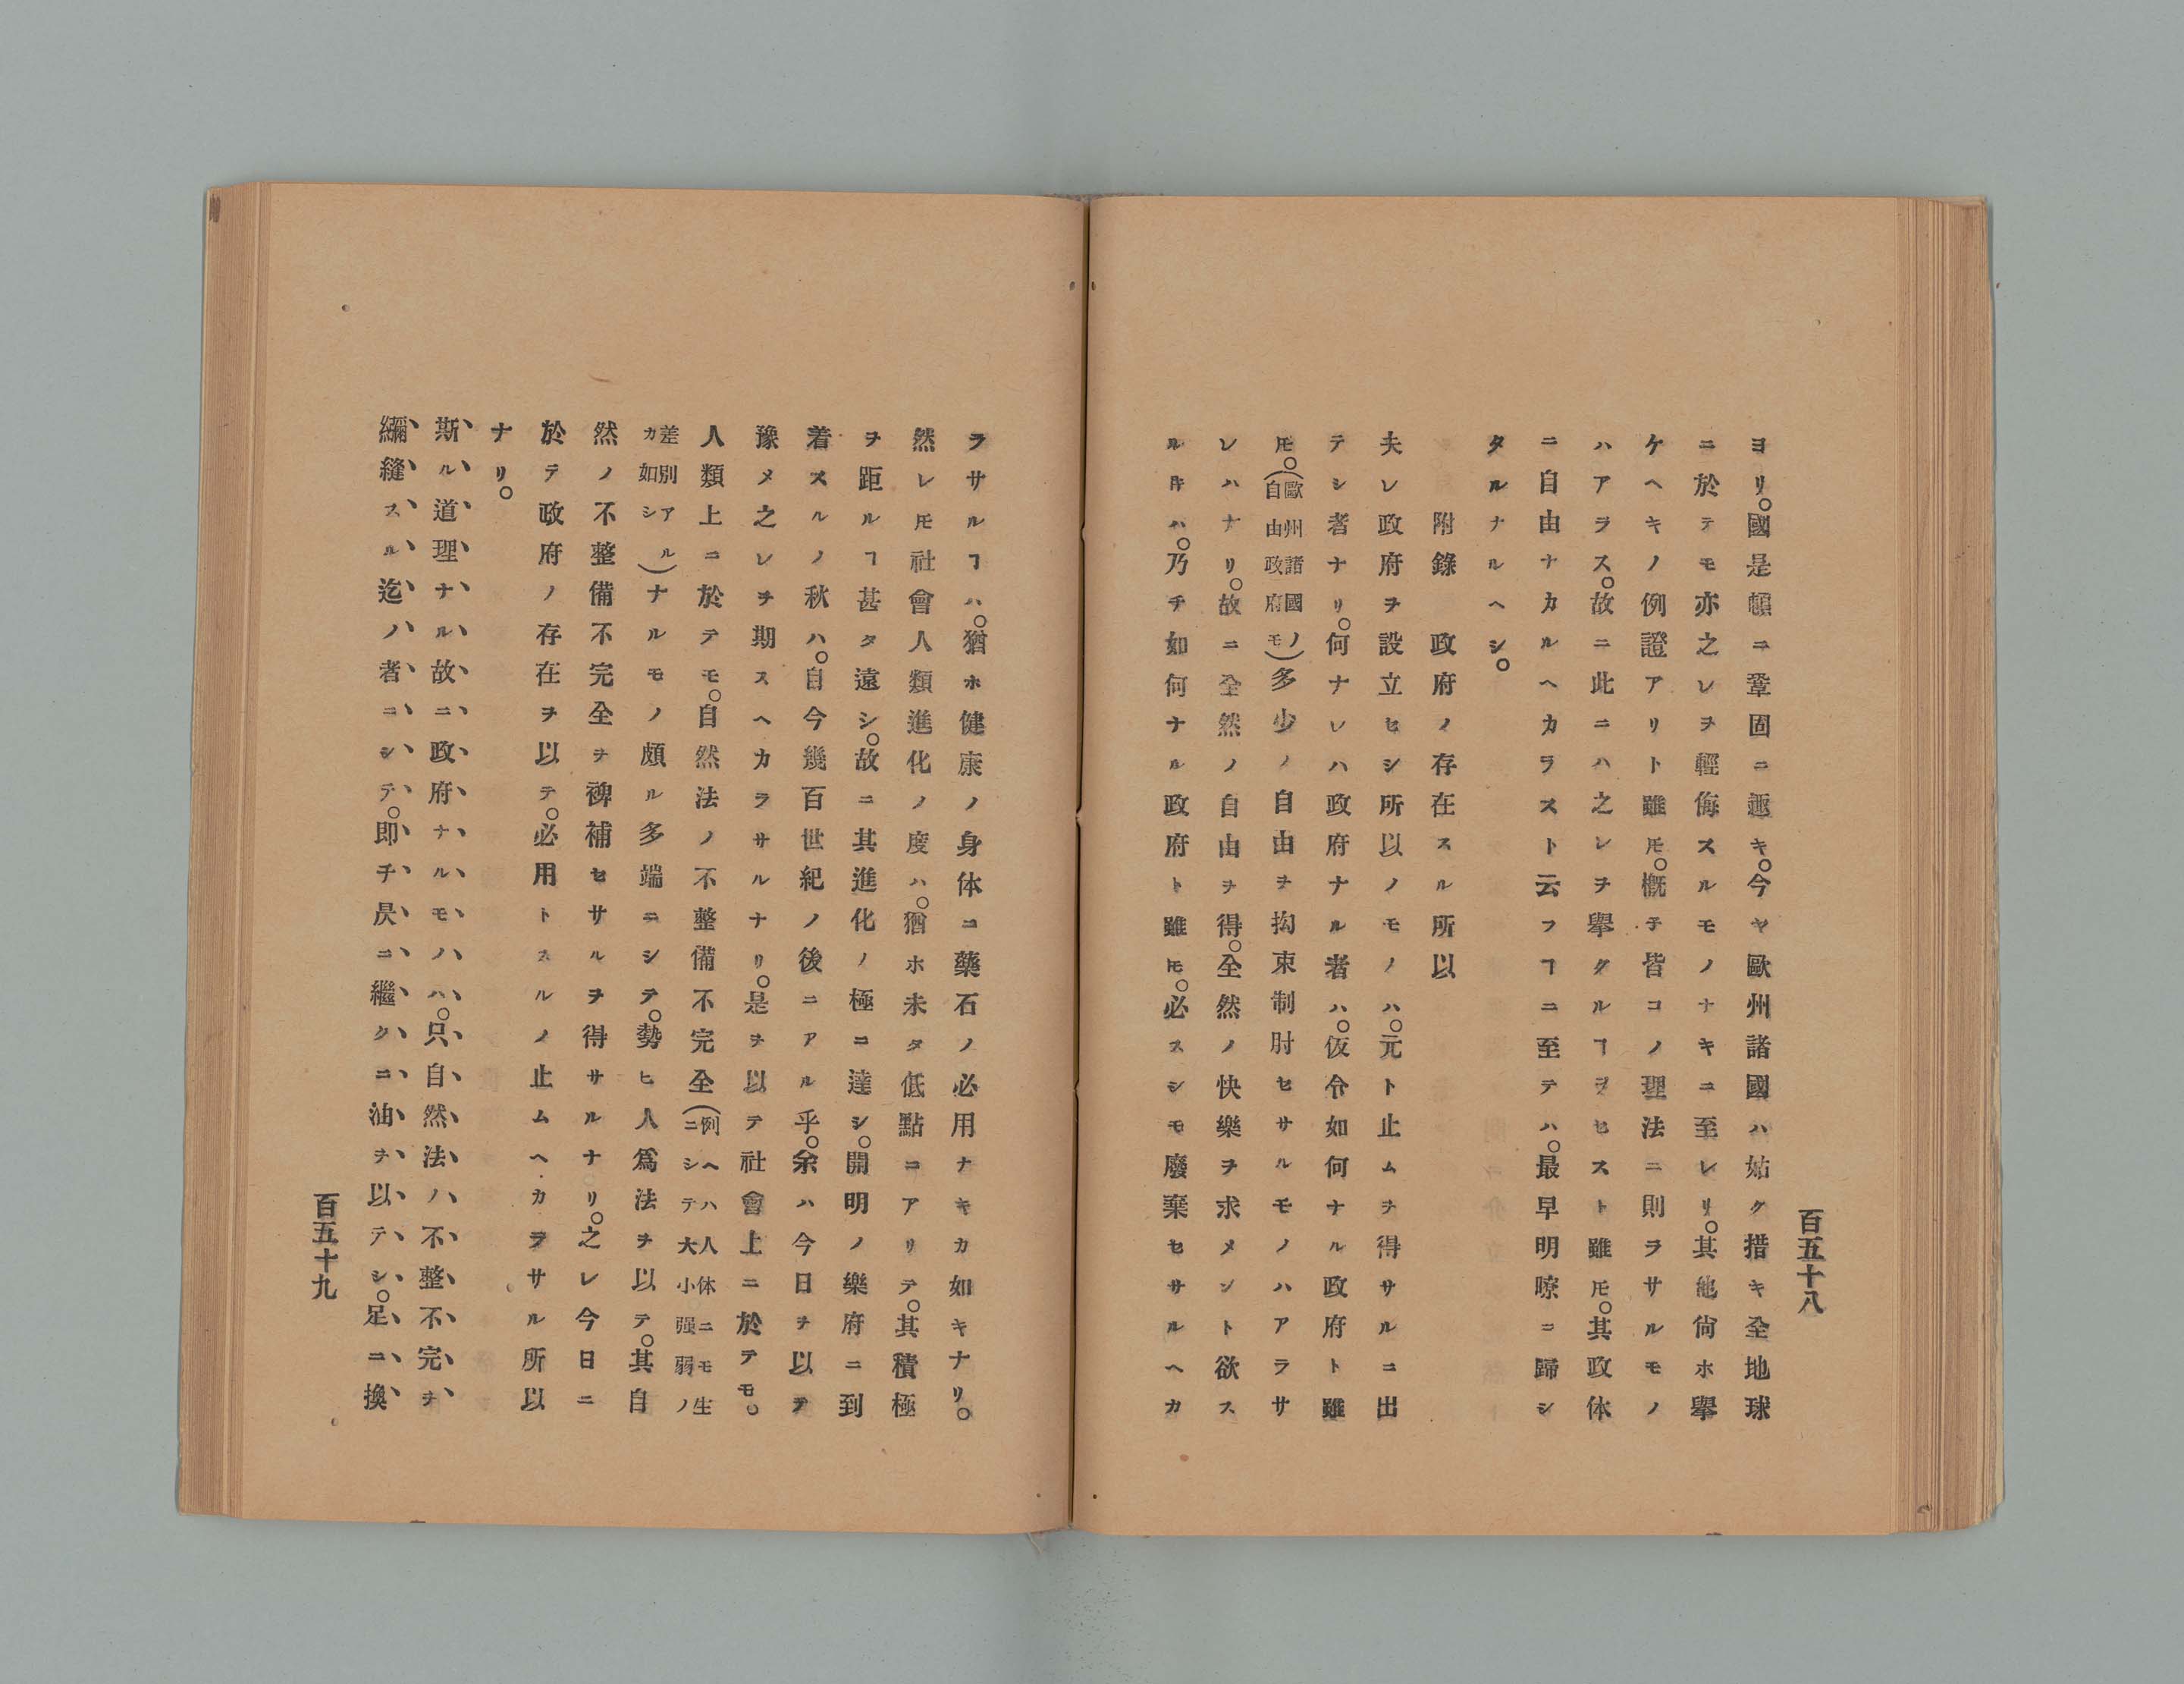 百五十八
ヨリ。國是頓ニ鞏固ニ趣キ。今ヤ歐州諸國ハ姑ク措キ全地球
ニ於テモ亦之レヲ輕侮スルモノナキニ至レリ。其他尙ホ擧
ケヘキノ例證アリト雖𪜈。概子皆コノ理法ニ則ラサルモノ
ハアラス。故ニ此ニハ之レヲ擧クルヿヲセスト雖𪜈。其政体
ニ自由ナカルヘカラスト云フヿニ至テハ。最早明暸ニ歸シ
タルナルヘシ。
附錄　政府ノ存在スル所以
夫レ政府ヲ設立セシ所以ノモノハ。元ト止ムヲ得サルニ出
テシ者ナリ。何ナレハ政府ナル者ハ。仮令如何ナル政府ト雖
𪜈。(歐州諸國ノ自由政府モ)多少ノ自由ヲ拘束制肘セサルモノハアラサ
レハナリ。故ニ全然ノ自由ヲ得。全然ノ快樂ヲ求メント欲ス
ル𪜈ハ。乃チ如何ナル政府ト雖𪜈。必スシモ廢棄セサルヘカ
ラサルヿハ。猶ホ健康ノ身体ニ藥石ノ必用ナキカ如キナリ。
然レ𪜈社會人類進化ノ度ハ。猶ホ未タ低點ニアリテ。其積極
ヲ距ルヿ甚タ遠シ。故ニ其進化ノ極ニ達シ。開明ノ樂府ニ到
着スルノ秋ハ。自今幾百世紀ノ後ニアル乎。余ハ今日ヲ以テ
豫メ之レヲ期スヘカラサルナリ。是ヲ以テ社會上ニ於テモ。
人類上ニ於テモ。自然法ノ不整備不完全(例ヘハ人体ニモ生ニシテ大小强弱ノ
差別アルカ如シ)ナルモノ頗ル多端ニシテ。勢ヒ人爲法ヲ以テ。其自
然ノ不整備不完全ヲ裨補セサルヲ得サルナリ。之レ今日ニ
於テ政府ノ存在ヲ以テ。必用トスルノ止ムヘカラサル所以
ナリ。
斯ル道理ナル故ニ政府ナルモノハ。只自然法ノ不整不完ヲ
繃縫スル迄ノ者ニシテ。即チ昃ニ繼クニ油ヲ以テシ。足ニ換
百五十九